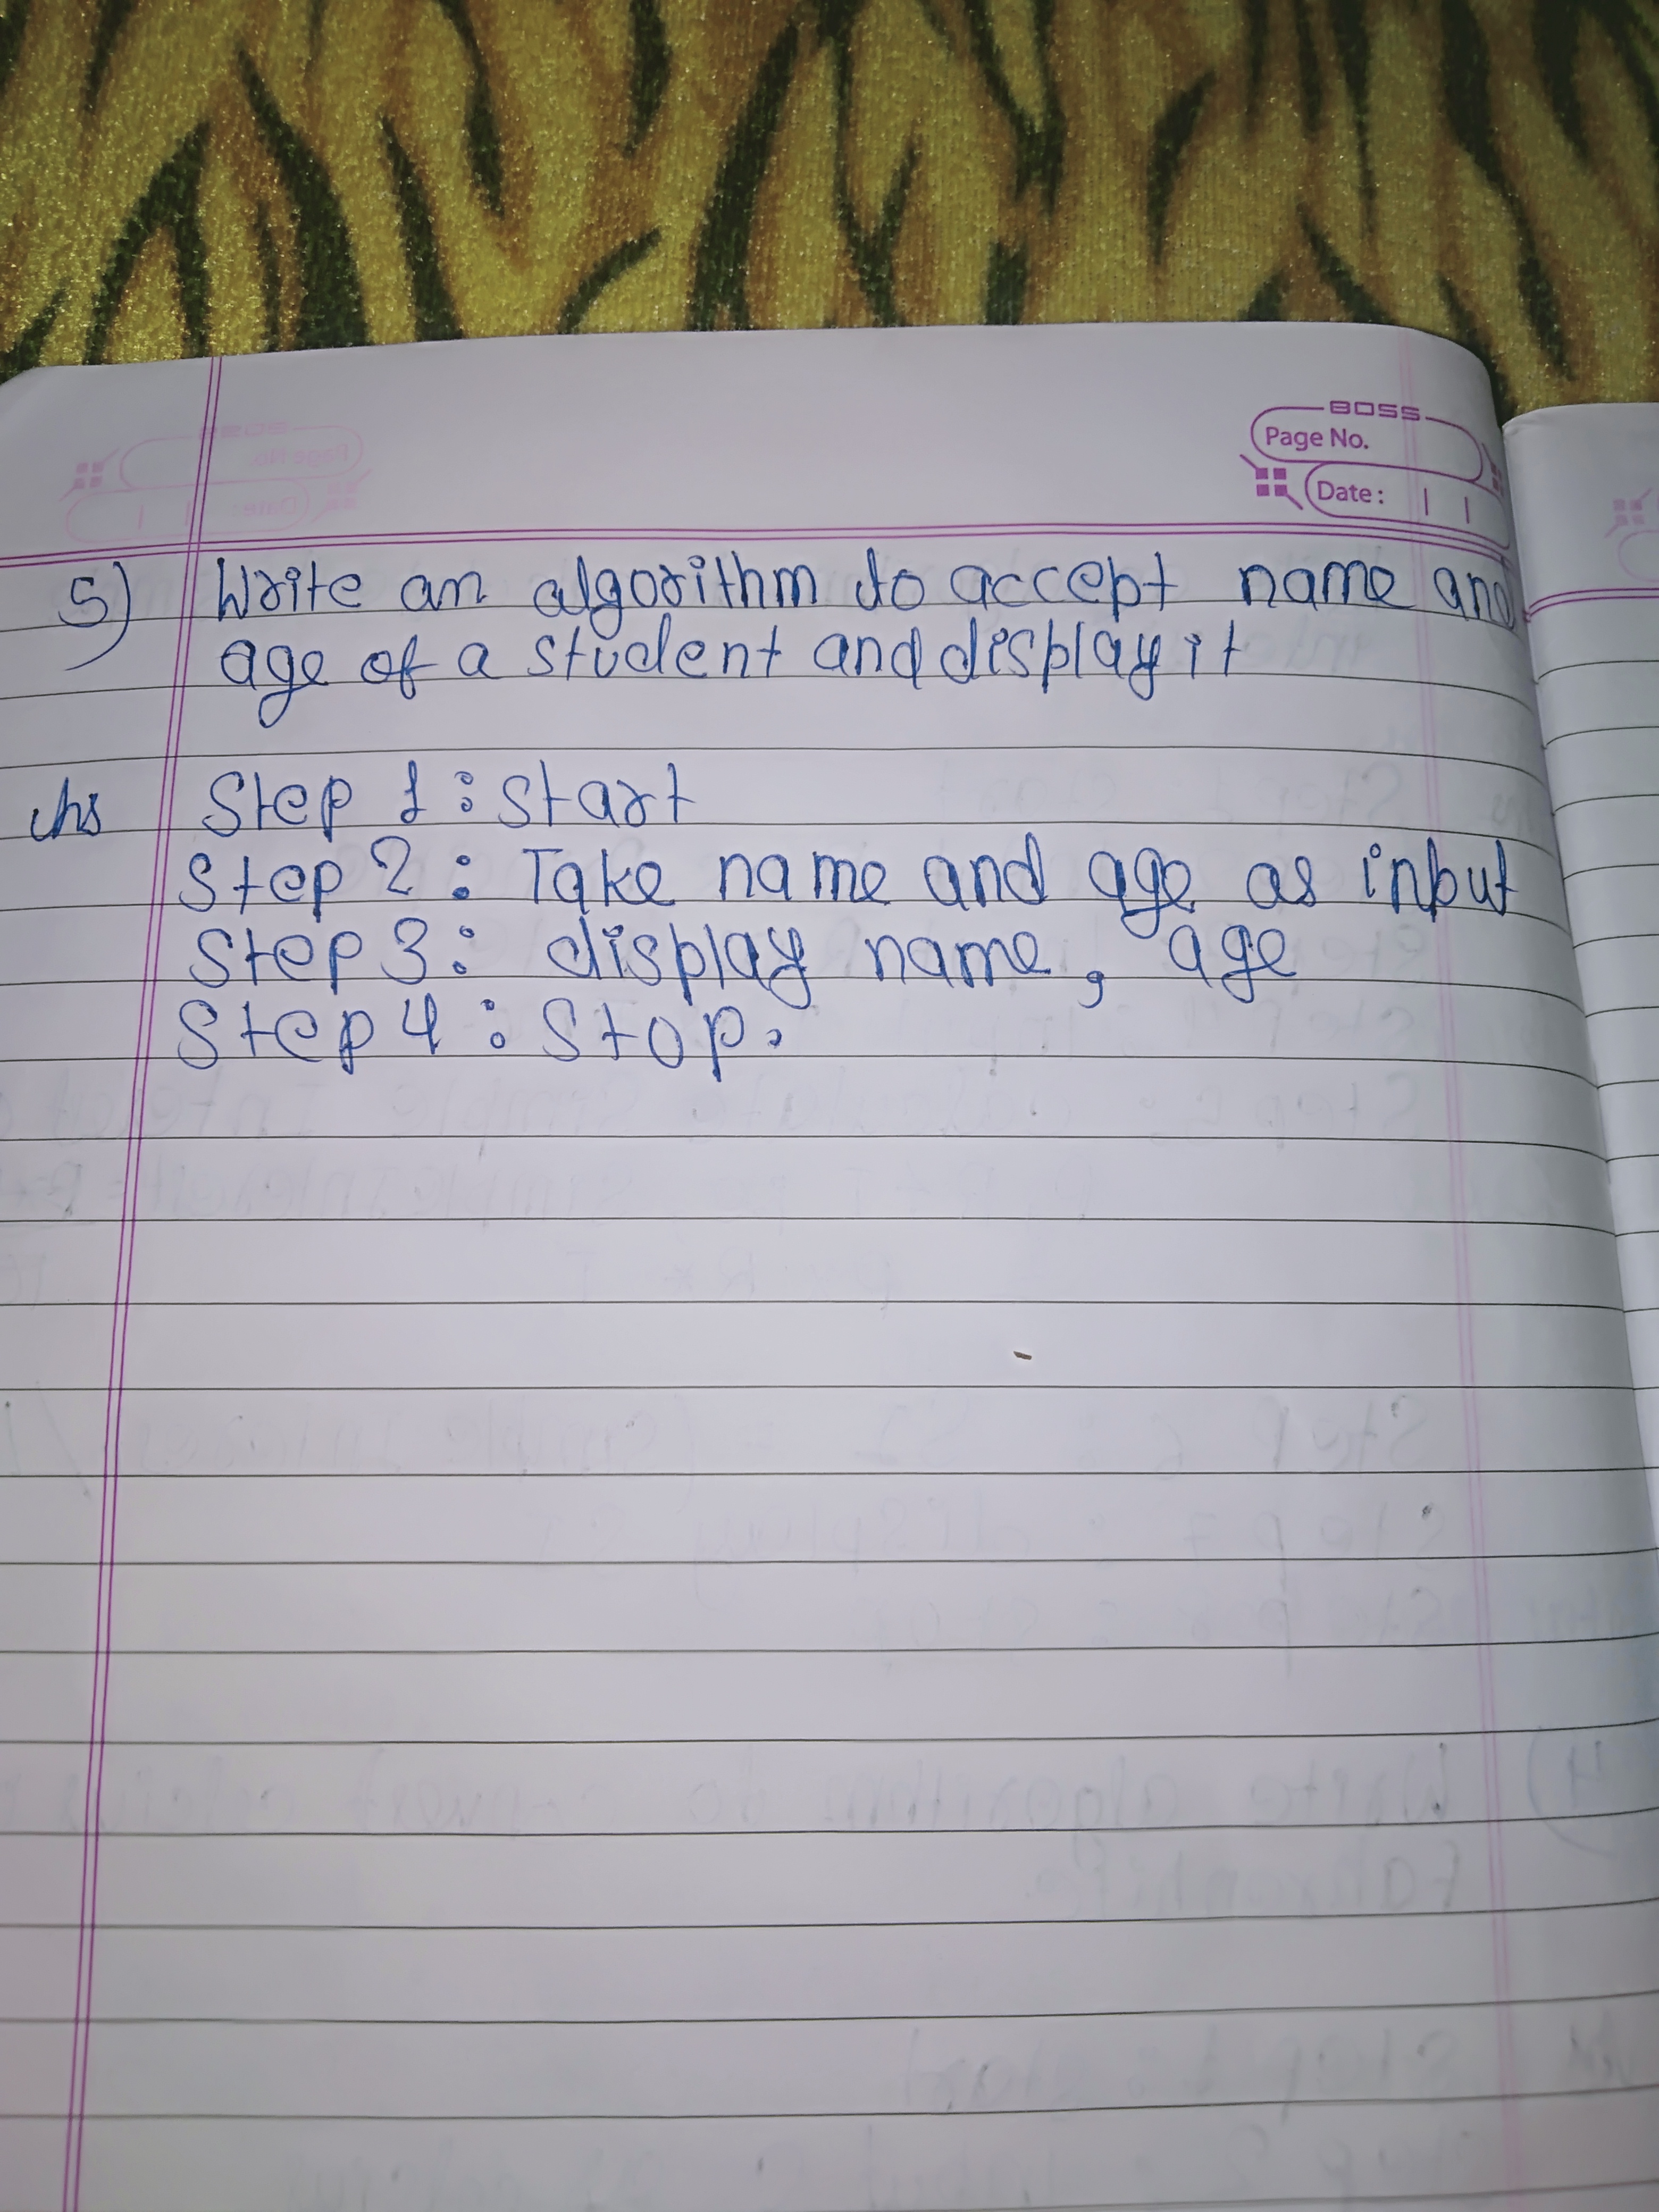 BOSS
Page No.
Date:
5) Write an algorithm to accept name and
age of a student and display it
Ans Step 1 : Start
Step 2 : Take name and age as input
Step 3 : display name, age
Step 4 : Stop.